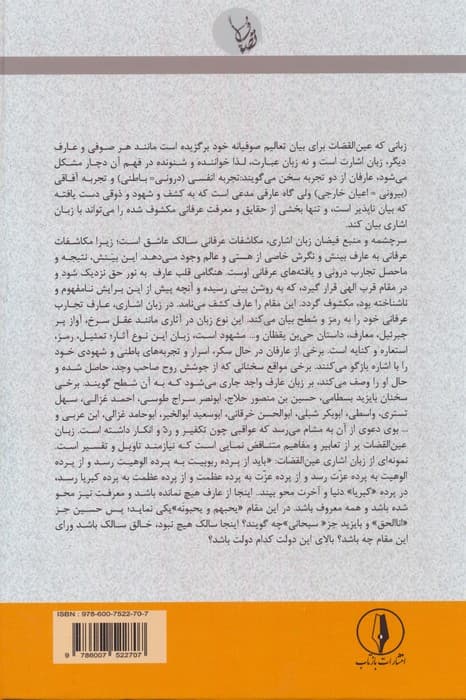 زبانی که عین‌القضات برای بیان تعالیم صوفیانه خود برگزیده است مانند هر صوفی و عارف
دیگر، زبان اشارت است و نه زبان عبارت، لذا خواننده و شنونده در فهم آن دچار مشکل
می‌شود، عارفان از دو تجربه سخن می‌گویند:تجربه انفسی (درونی= باطنی) و تجربه آفاقی
(بیرونی = اعیان خارجی) ولی گاه عارفی مدعی است که به کشف و شهود و ذوقی دست یافته
که بیان ناپذیر است، و تنها بخشی از حقایق و معرفت عرفانی مکشوف شده را می‌تواند با زبان
اشاری بیان کند.
سرچشمه و منبع فیضان زبان اشاری، مکاشفات عرفانی سالک عاشق است؛ زیرا مکاشفات
عرفانی به عارف بینش و نگرش خاصی از هستی و عالم وجود می‌دهد. این بینش، نتیجه و
ماحصل تجارب درونی و یافته‌های عرفانی اوست. هنگامی قلب عارف به نور حق نزدیک شود و
در مقام قرب الهی قرار گیرد، که به روشن بینی رسیده و آنچه پیش از این برایش نامفهوم و
ناشناخته بود، مکشوف گردد. این مقام را عارف کشف می‌نامد. در زبان اشاری، عارف تجارب
عرفانی خود را به رمز و شطح بیان می‌کند. این نوع زبان در آثاری مانند عقل سرخ، آواز پر
جبرئیل، معارف، داستان حی‌بن یقظان و... مشهود است، زبان این نوع آثار؛ تمثیل، رمز،
استعاره و کنایه است. برخی از عارفان در حال سکر، اسرار و تجربه‌های باطنی و شهودی خود
را با اشاره بازگو می‌کنند. برخی مواقع سخنانی که از جوشش روح صاحب وجد، حاصل شده و
حال او را وصف می‌کند، بر زبان عارف واجد جاری می‌شود کـه به آن شطح گوینـد. برخـی
سخنان بایزید بسطامی، حسین بن منصور حلاج، ابونصر سراج طوسـی، احمـد غزالـی، سـهل
تستری، واسطی، ابوبکر شبلی، ابوالحسن خرقانی، ابوسعید ابوالخیر، ابوحامد غزالی، ابن عربی و
... بوی دعوی از آن به مشام می‌رسد که عواقبی چون تکفیر و ردّ و انکار داشته است. زبـان
عین‌القضات پر از تعابیر و مفاهیم متناقض نمایی است کـه نیازمنـد تاویـل و تفسـیر اسـت.
نمونه‌ای از زبان اشاری عین‌القضات: «باید از پرده ربوبیت به پرده الوهیت رسد و از پرده
الوهیت به پرده عزّت رسد و از پرده عزّت به پرده عظمت و از پرده عظمت به پرده کبریا رسد،
در پرده «کبریا» دنیا و آخرت محو بیند.. اینجا از عارف هیچ نمانده باشد و معرفت نیز محو
شده باشد و همه معروف باشد. در این مقام "یحبهم و یحبونه"یکی نماید؛ پس حسین جز
«اناالحق» و بایزید جز" سبحانی"چه گویند؟ اینجا سالک هیچ نبود، خالق سالک باشد ورای
این مقام چه باشد؟ بالای این دولت کدام دولت باشد؟
ISBN : 978-600-7522-70-7
9 786007 522707
انتشارات بازتاب